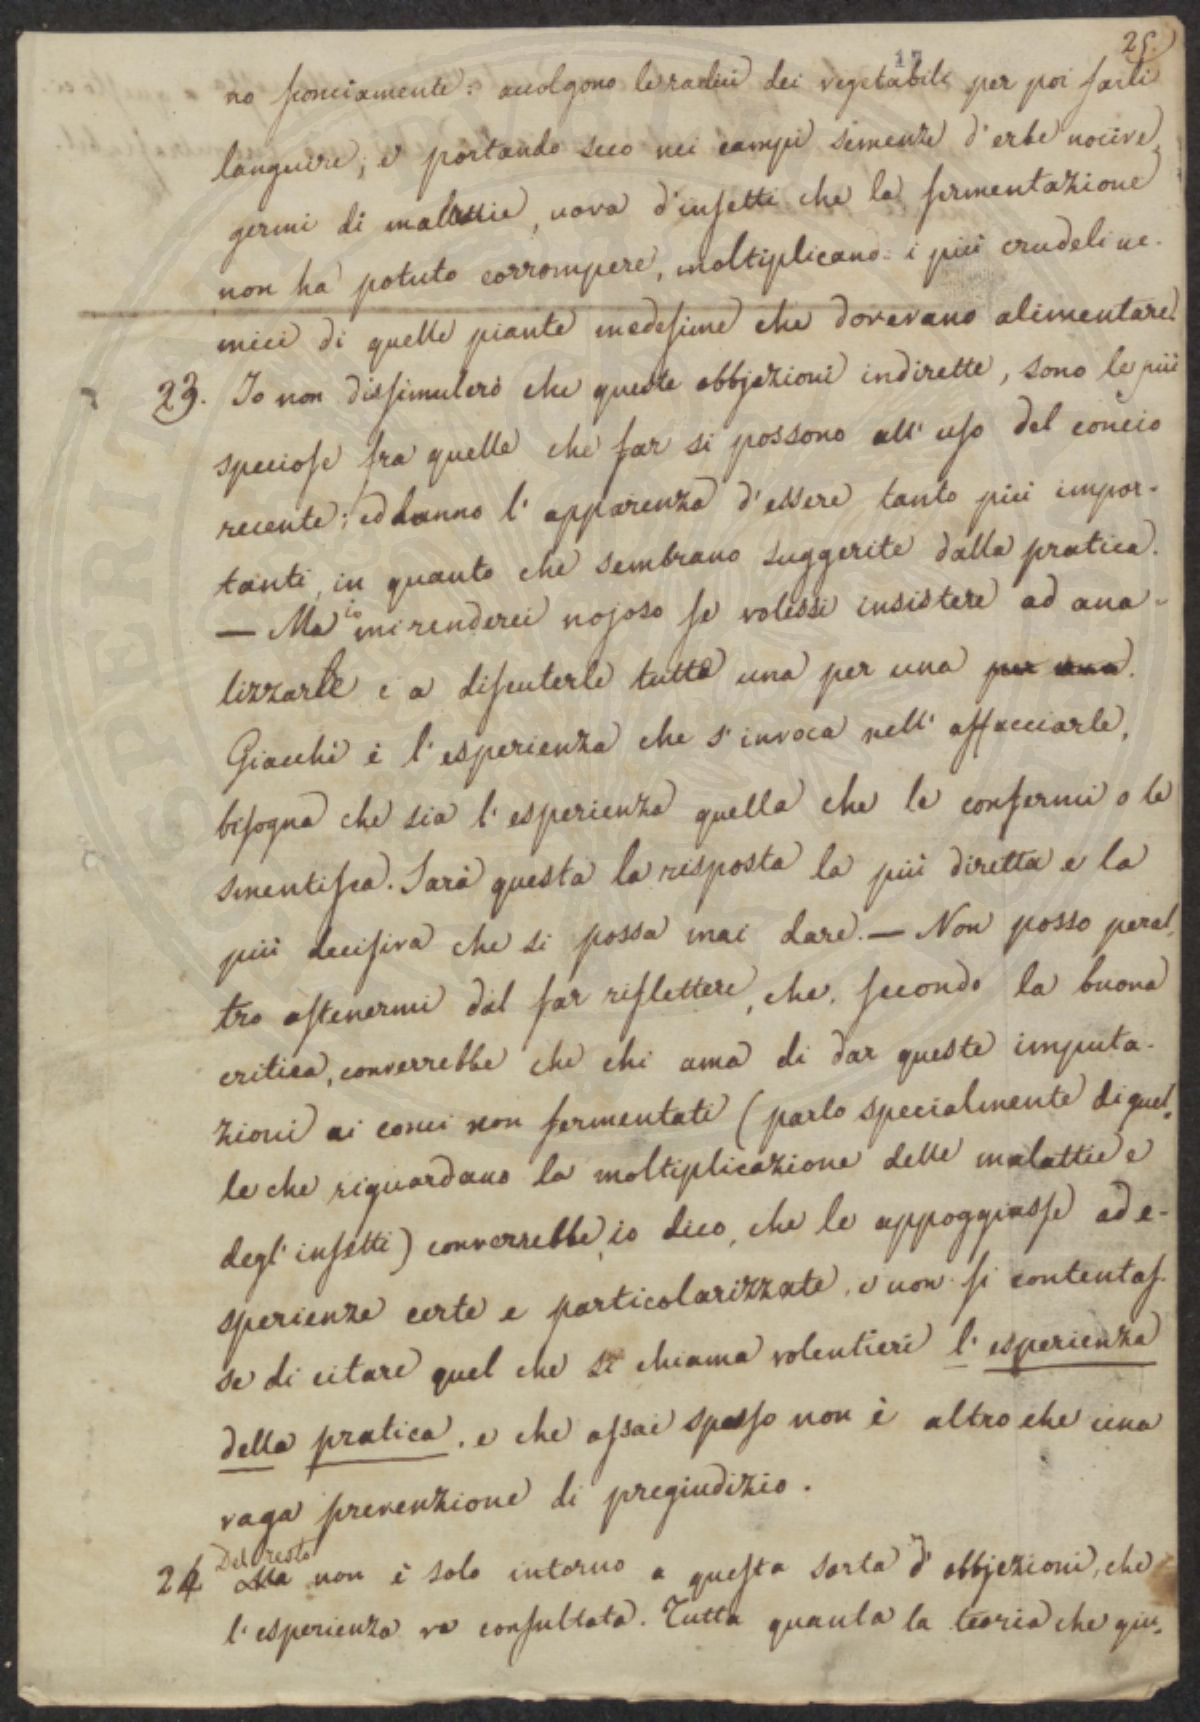 25.
17
no sconciamente: accolgono le radici dei vegetabili per poi farli
languire; e portando seco nei campi semenze d'erbe nocive,
germi di malattie, uova d'insetti che la fermentazione
non ha potuto corrompere, moltiplicano i più crudeli ne-
mici di quelle piante medesime che dovevano alimentare.
23. Io non dissimulerò che queste obbjezioni indirette, sono le più
speciose fra quelle che far si possono all'uso del concio
recente; ed hanno l'apparenza d'essere tanto più impor-
tanti, in quanto che sembrano suggerite dalla pratica.
— Ma io mi renderei nojoso se volessi insistere ad ana-
lizzarle e a discuterle tutte una per una per una.
Giacchè è l'esperienza che s'invoca nell'affacciarle,
bisogna che sia l'esperienza quella che le confermi o le
smentisca. Sarà questa la risposta la più diretta e la
più decisiva che si possa mai dare. — Non posso peral-
tro astenermi dal far riflettere, che, secondo la buona
critica, converrebbe che chi ama di dar queste imputa-
zioni ai conci non fermentati (parlo specialmente di quel-
le che riguardano la moltiplicazione delle malattie e
degl'insetti) converrebbe, io dico, che le appoggiasse ad e-
sperienze certe e particolarizzate, e non si contentas-
se di citare quel che si chiama volentieri l'esperienza
della pratica, e che assai spesso non è altro che una
vaga prevenzione di pregiudizio.
Del resto
24 Ma non è solo intorno a questa sorta d'obbjezioni, che
l'esperienza va consultata. Tutta quanta la teoria che giu-